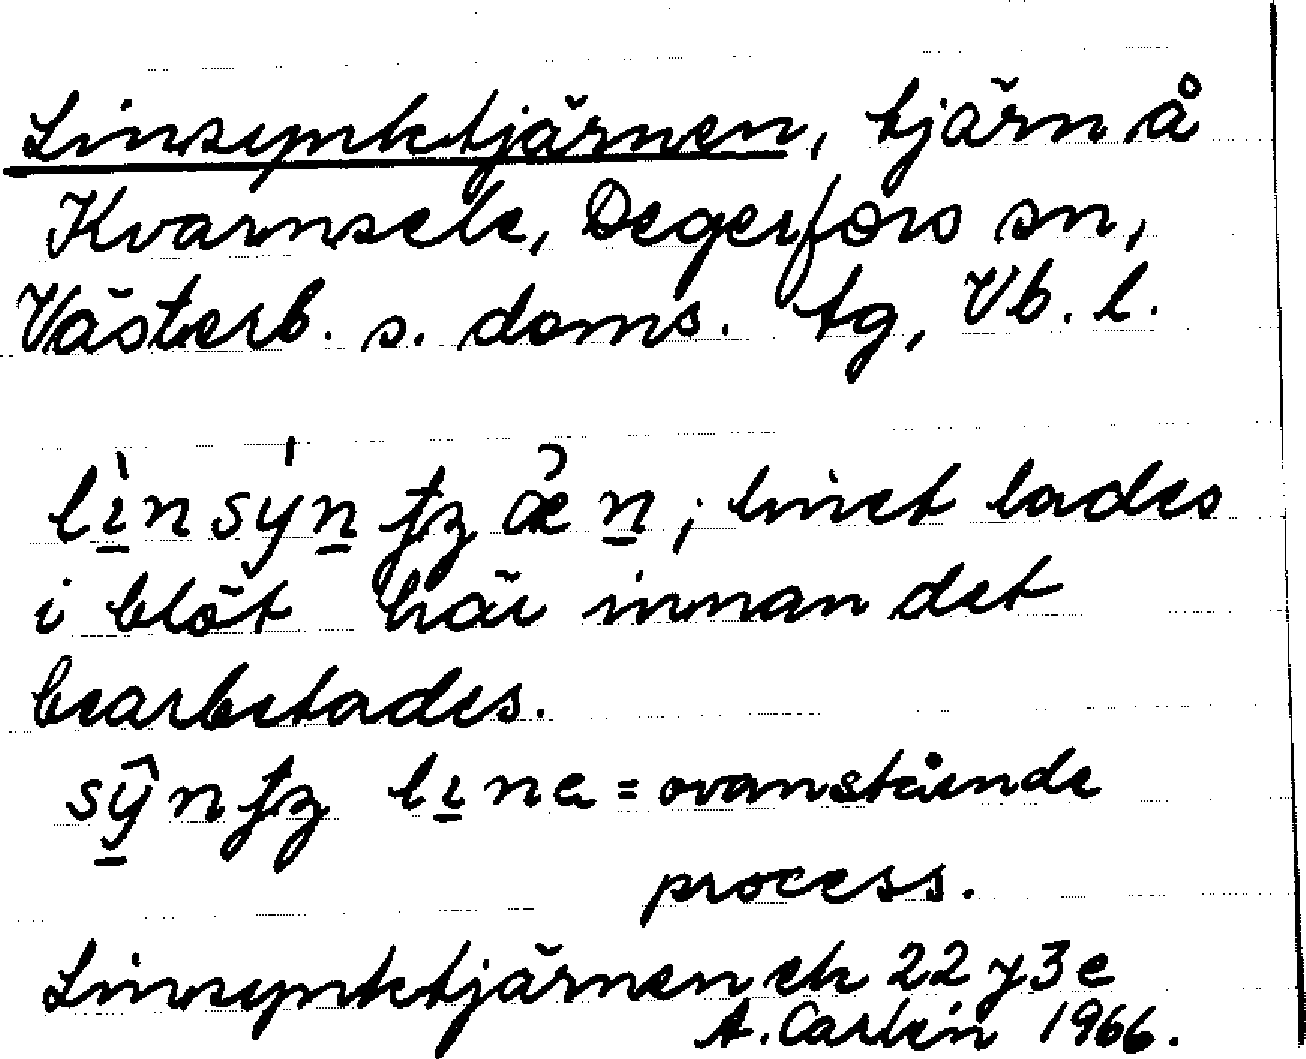 Linsynktjärnen, tjärn å
Kvarnsele, Degerfors sn,
Västerb. s. doms. tg, Vb. l.
linet lades
i blöt här innan det
bearbetades.
= ovanstående
process.
Linsynktjärnen ek 22 y 3 e
A. Carlén 1966.